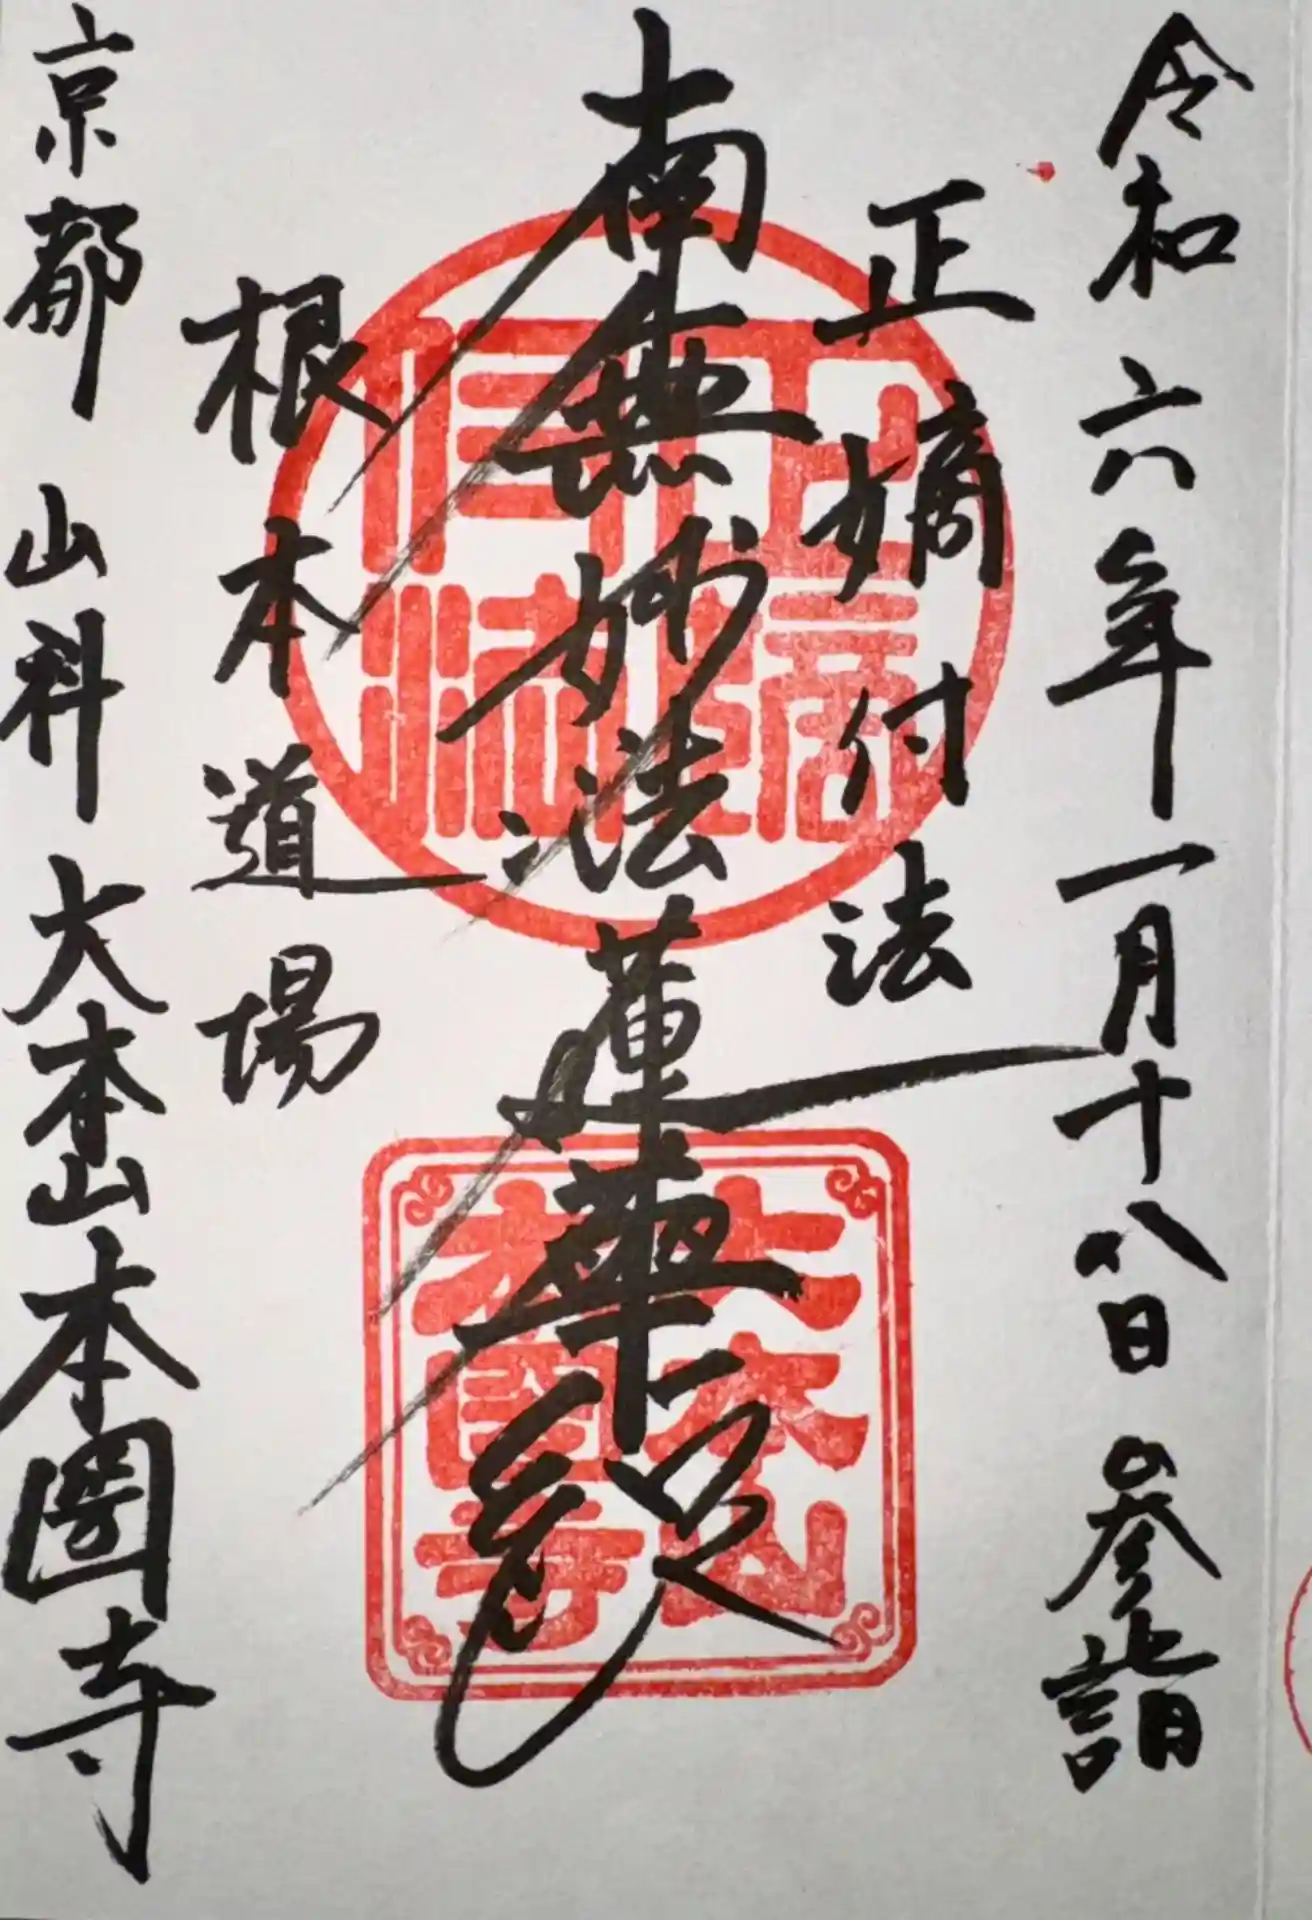 令和六年一月十八日参詣
正嫡付法
南無妙法蓮華経
根本道場
京都山科大本山本圀寺
大本山
本圀寺